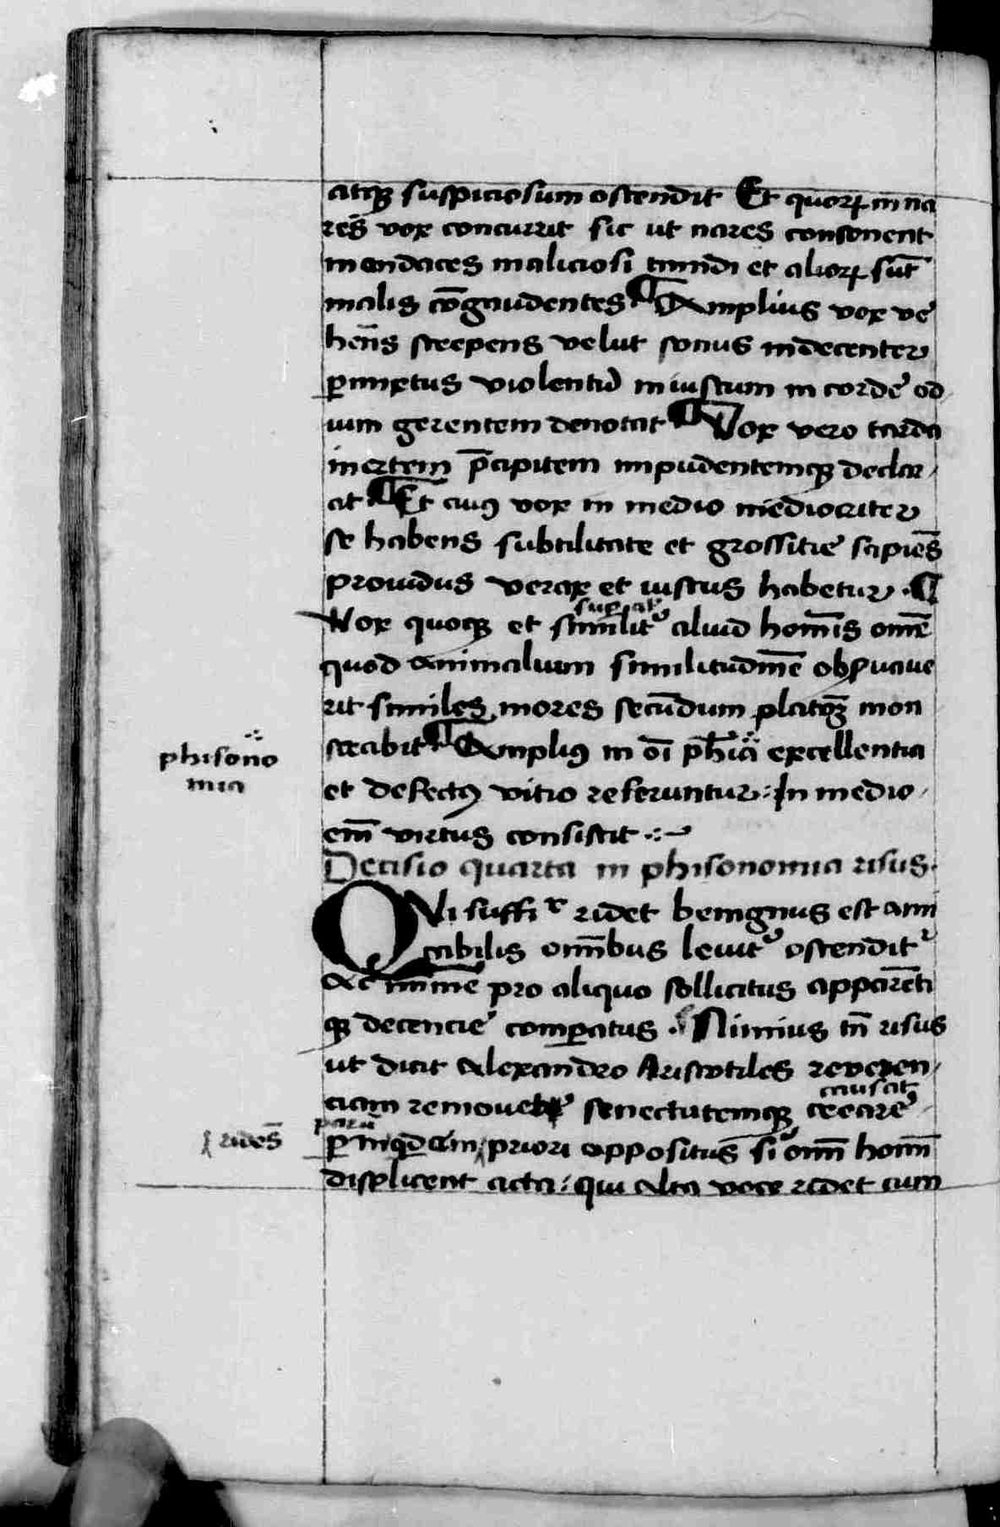 atqꝫ suspiciosum ostendit Et quorꝝ in na
res vox concurrit sic ut nares consonent
mendaces maliciosi timidi et aliorꝝ sūt
malis cōgaudentes ¶ Amplius vox ve
hem̄s strepens velut sonus indecenter
ꝑmixtus violentū iniustum in corde od
ium gerentem denotat ¶ Vox vero tarda
inertem p̄cipitem impudentemqꝫ declar
at ¶ Et cuiꝰ vox in medio mediocriter
se habens subtilitate et grossitie sapiēs
prouidus verax et iustus habetur · ¶
Vox quoqꝫ et similitᵉʳ aliud hom̄is om̄e
quod animalium similitudinē obꝑuaue
rit similes mores secundum platoꝫ mon
strabit ¶ Ampliꝰ in oī ph̄ia excellentia
phisono
mia
et defectꝰ vitio referuntur · In medio
em̄ virtus consistit
Decisio quarta in phisonomia risus ·
QVi suffi r̄ ridet benignus est ami
cabilis om̄ibus leuitᵉʳ ostenditʳ
ac mīme pro aliquo sollicitus apparēti
qꝫ decencie comꝑatus · Nimius tn̄ risus
ut dicit Alexandro Aristotiles reueren
causat
ciam remouet senectutemqꝫ creare
parū
ridēs
priori oppositus si om̄i hom̄
displicent acta · qui alta voce ridet cum